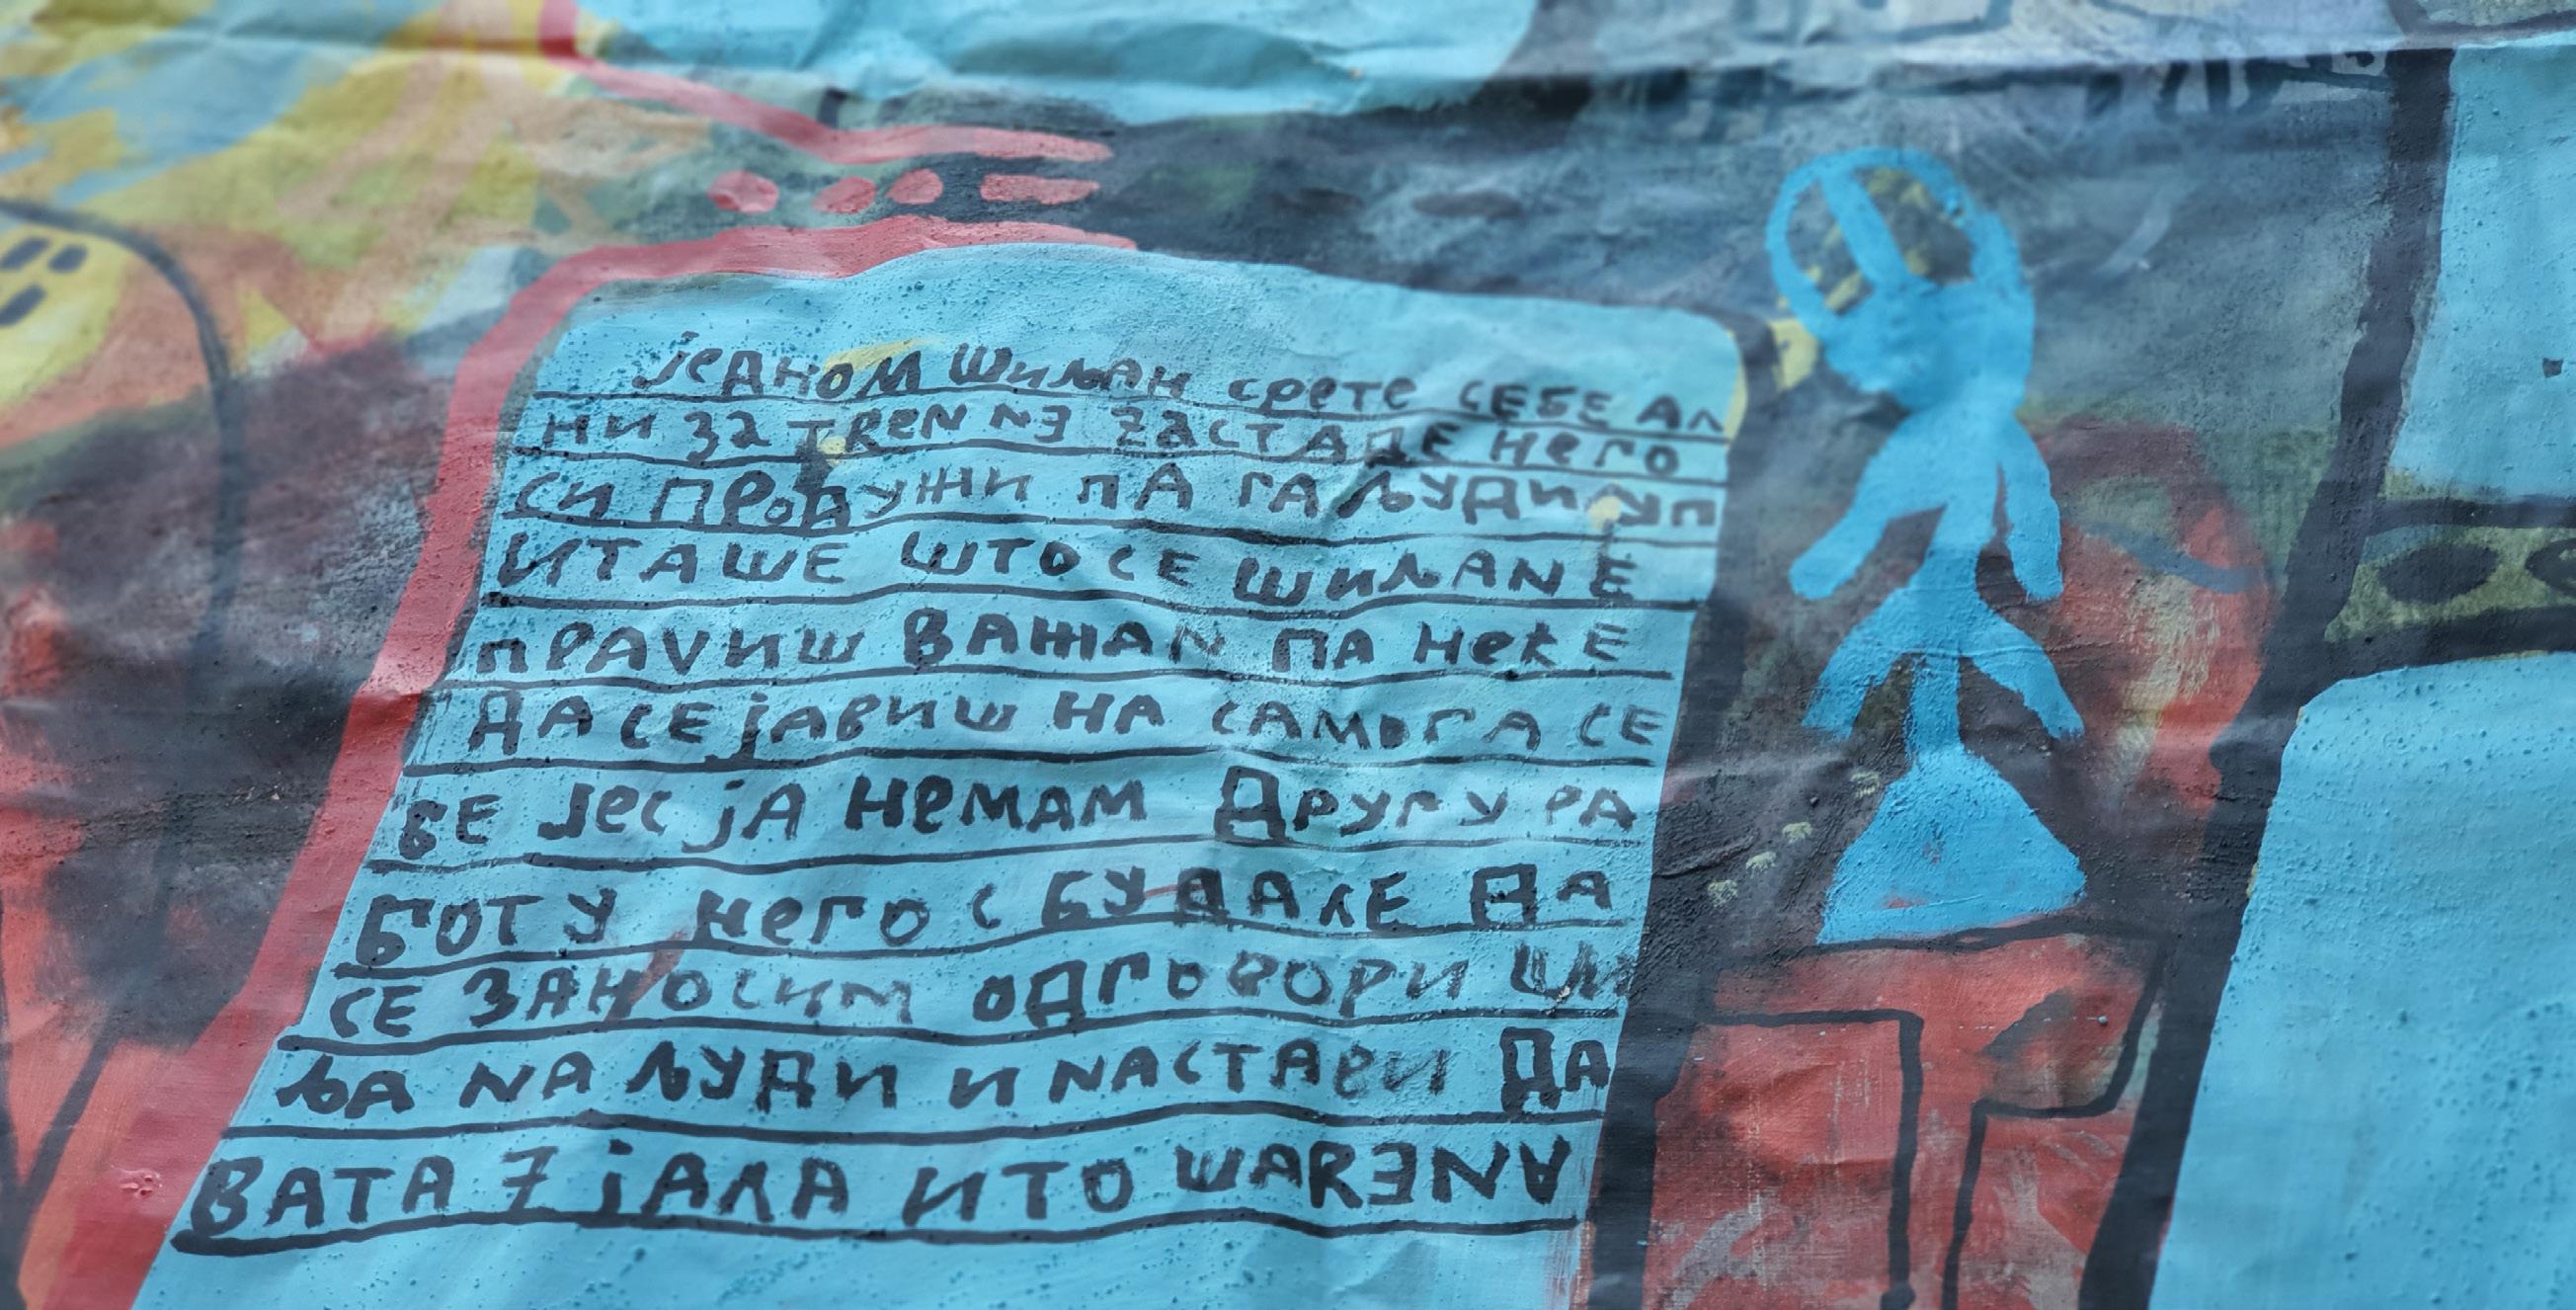 једном шиљан срете СЕБЕ АЛ
НИ За TReN NЭ ZaСТАДЕ НеГО
СИ ПРоДУЖИ ПА ГА ЉУДИ УП
ИТАШЕ ШТО СЕ ШИЉАN Е
ПРАVИШ ВАЖАN ПА НеkЕ
ДА СЕ јАВИШ НА САМОГА СЕ
БЕ јеС јА НеМАМ ДРУГУ РА
БОТУ НеГО С БУДАЛЕ ДА
СЕ ЗАНОСИМ ОДГОВОРИ ШИ
ЉА NА ЉУДИ И NАСТАВИ ДА
ВАТА 7 јАЛА ИТО ШАRЭNА